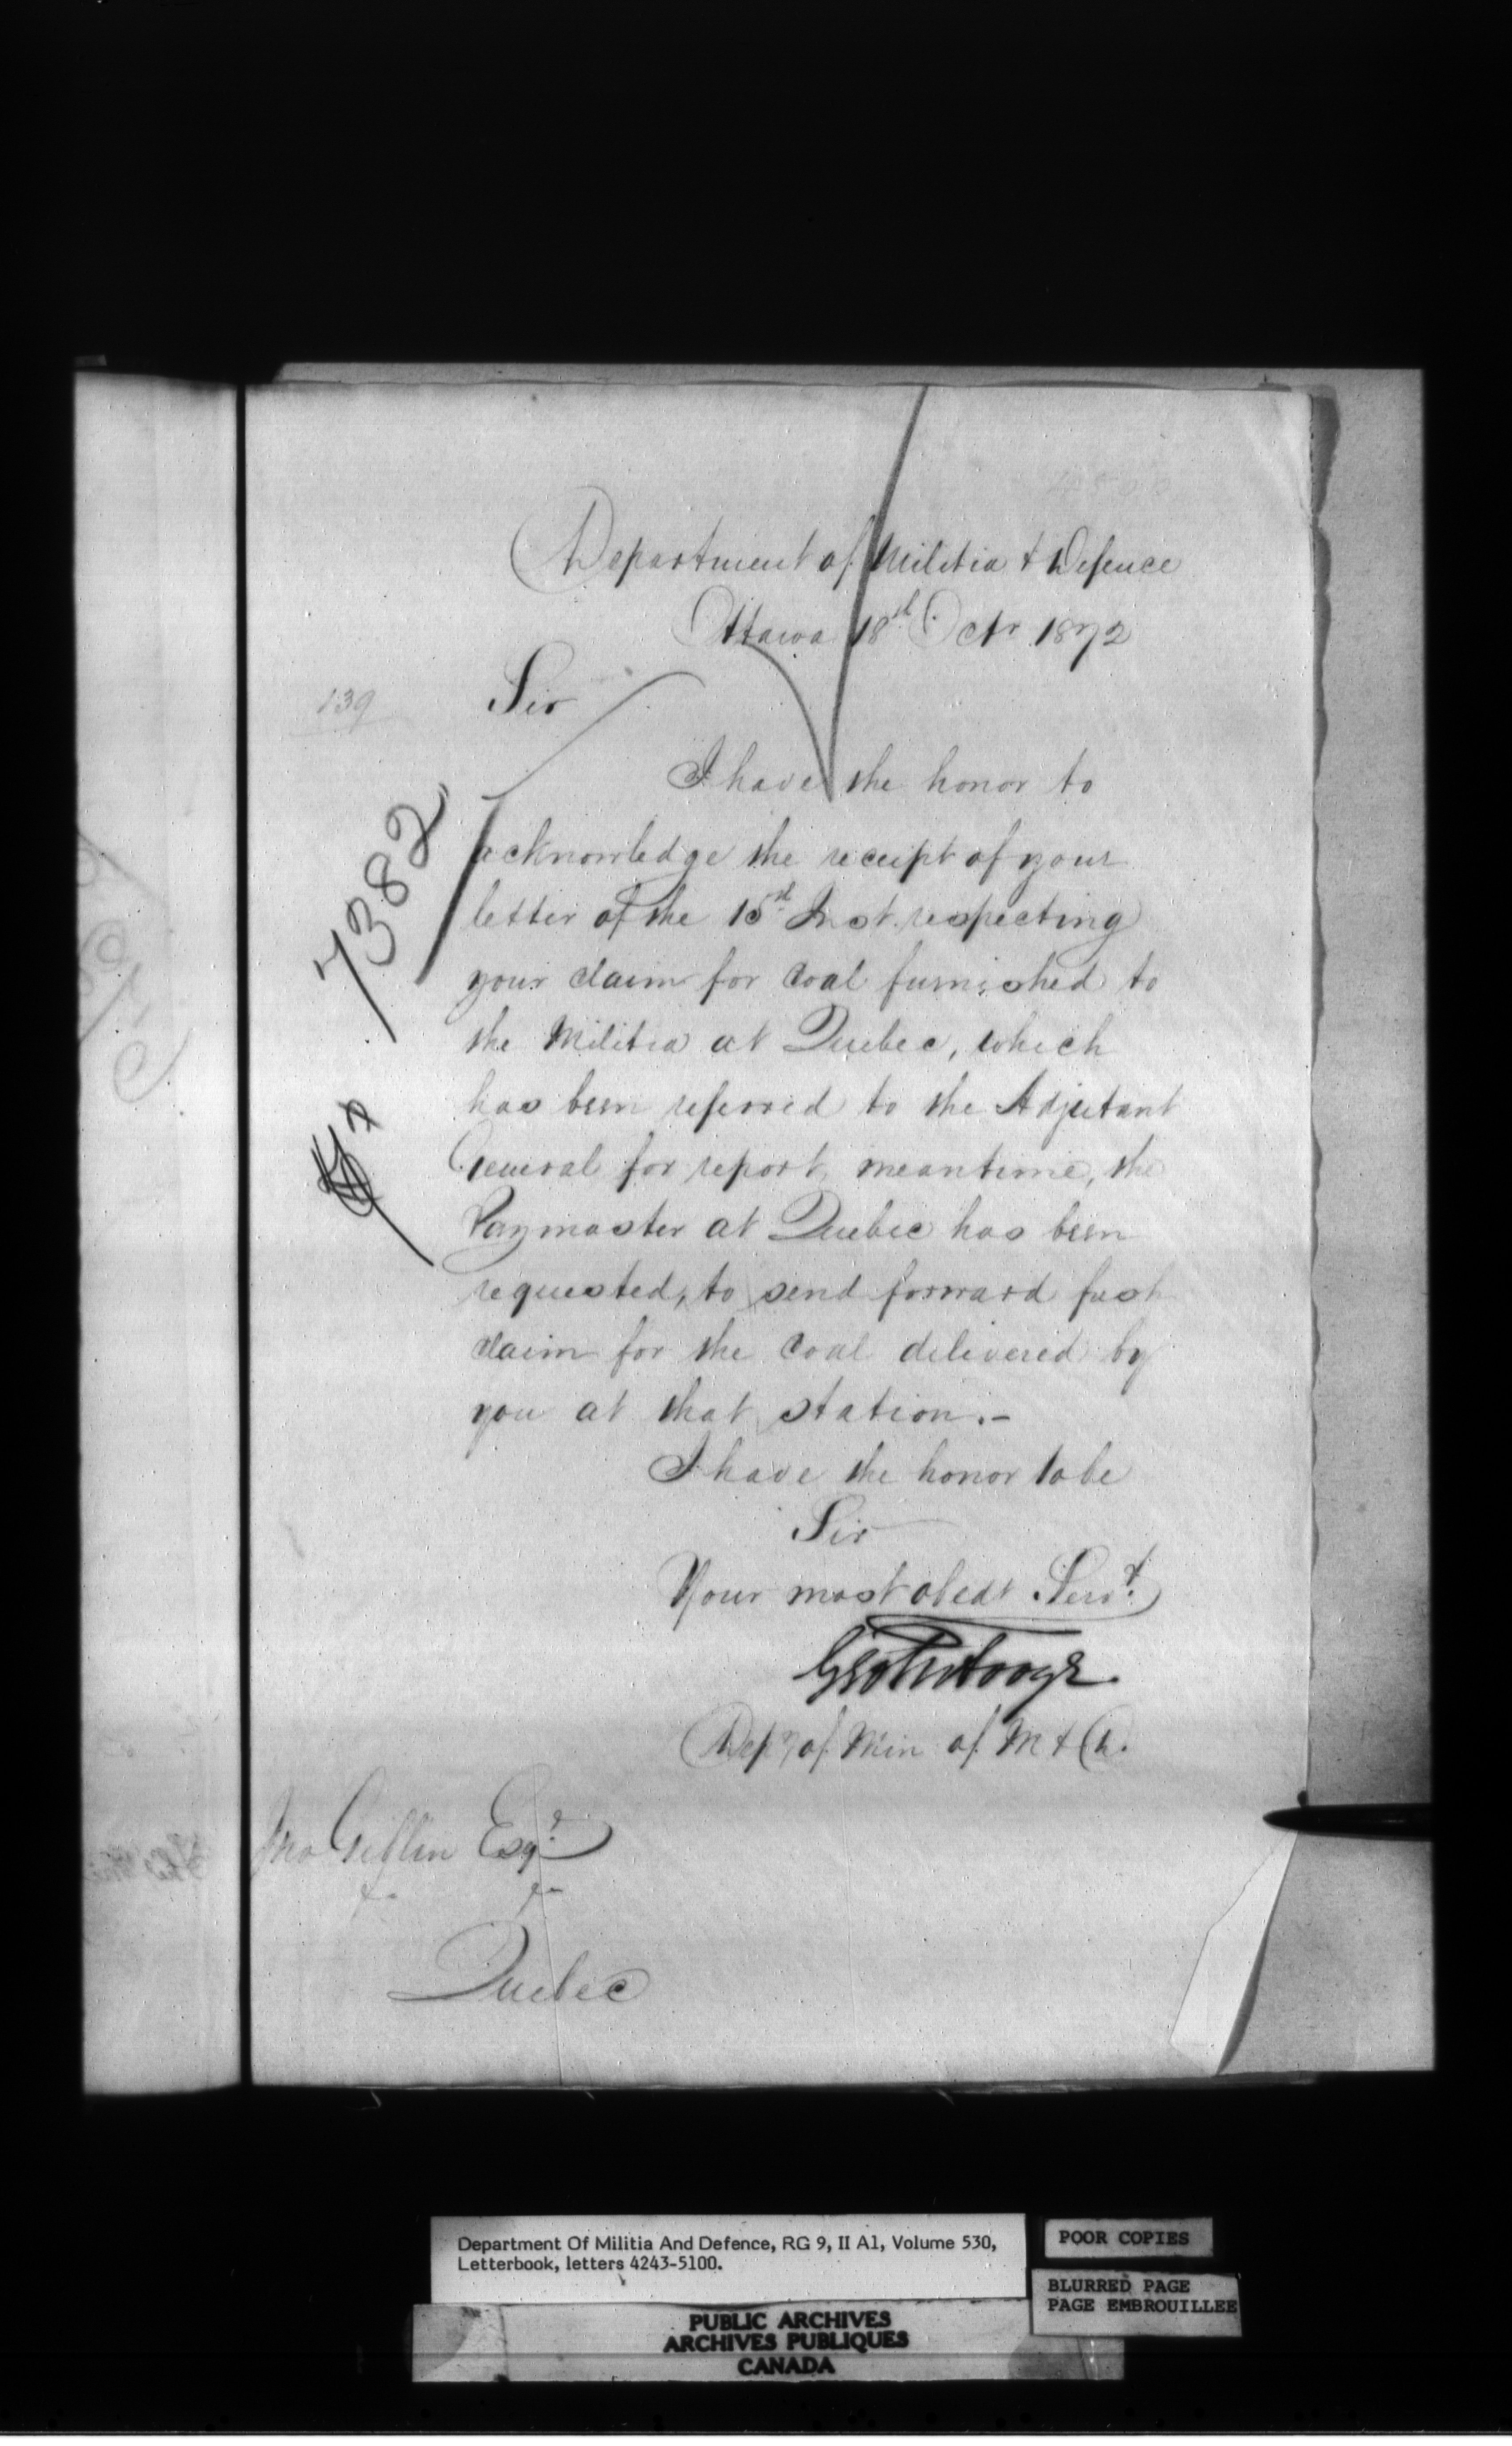 Department of Militia & Defence
Ottawa 18th Octr 1872
139
Sir
I have the honor to
7382
acknowledge the receipt of your
letter of the 15th Inst. respecting
your claim for Coal furnished to
the Militia at Quebec, which
has been referred to the Adjutant
General for report, meantime, the
Paymaster at Quebec has been
requested, to send forward fresh
claim for the Coal delivered by
you at that station.-
I have the honor to be
Sir
Your most obedt Servt.
Depy of Min of M & D.
Jno Giblin Esqr.
Quebec
Department Of Militia And Defence, RG 9, II A1, Volume 530,
Letterbook, letters 4243-5100.
POOR COPIES
BLURRED PAGE
PAGE EMBROUILLEE
PUBLIC ARCHIVES
ARCHIVES PUBLIQUES
CANADA